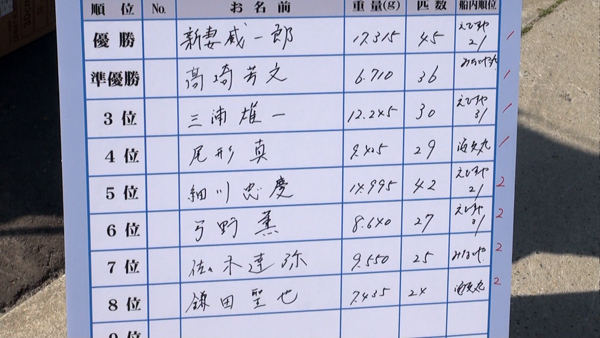 順位 No. お名前 重量(g) 匹数 船内順位
優勝 新妻威一郎 17.315 45 えびすや 21 1
準優勝 高崎芳文 6.710 36 1
3位 三浦雄一 12.245 30 えびすや 31 1
4位 尾形真 9.425 29 1
5位 細川忠慶 14.995 42 えびすや 21 2
6位 弓野薫 8.640 27 えびすや 31 2
7位 佐々木達弥 9.550 25 2
8位 鎌田聖也 7.435 24 2
9位